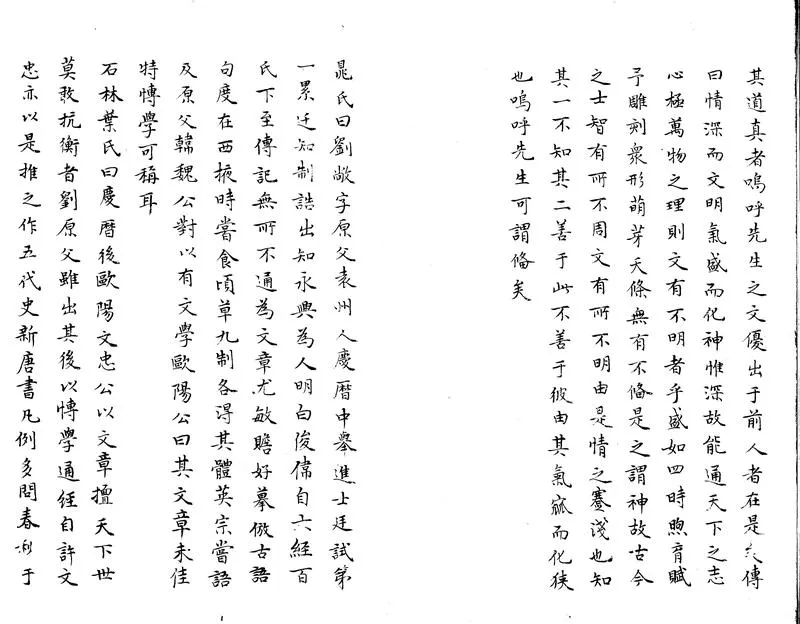 其道真者嗚呼先生之文優出于前人者在是矣傳
曰情深而文明氣盛而化神惟深故能通天下之志
心極萬物之理則文有不明者乎盛如四時煦育賦
予雕刻衆形萌芽夭條無有不偹是之謂神故古今
之士智有所不周文有所不明由是情之蹇淺也知
其一不知其二善于此不善于彼由其氣窳而化狹
也嗚呼先生可謂偹矣
晁氏曰劉敞字原父袁州人慶曆中舉進士廷試第
一累迁知制誥出知永興為人明白俊偉自六經百
氏下至傳記無所不通為文章尤敏贍好摹倣古語
句度在西掖時嘗食頃草九制各得其體英宗嘗語
及原父韓魏公對以有文學歐陽公曰其文章未佳
特愽學可稱耳
石林葉氏曰慶曆後歐陽文忠公以文章擅天下世
莫敢抗衡者劉原父雖出其後以愽學通經自許文
忠亦以是推之作五代史新唐書凡例多問春秋于